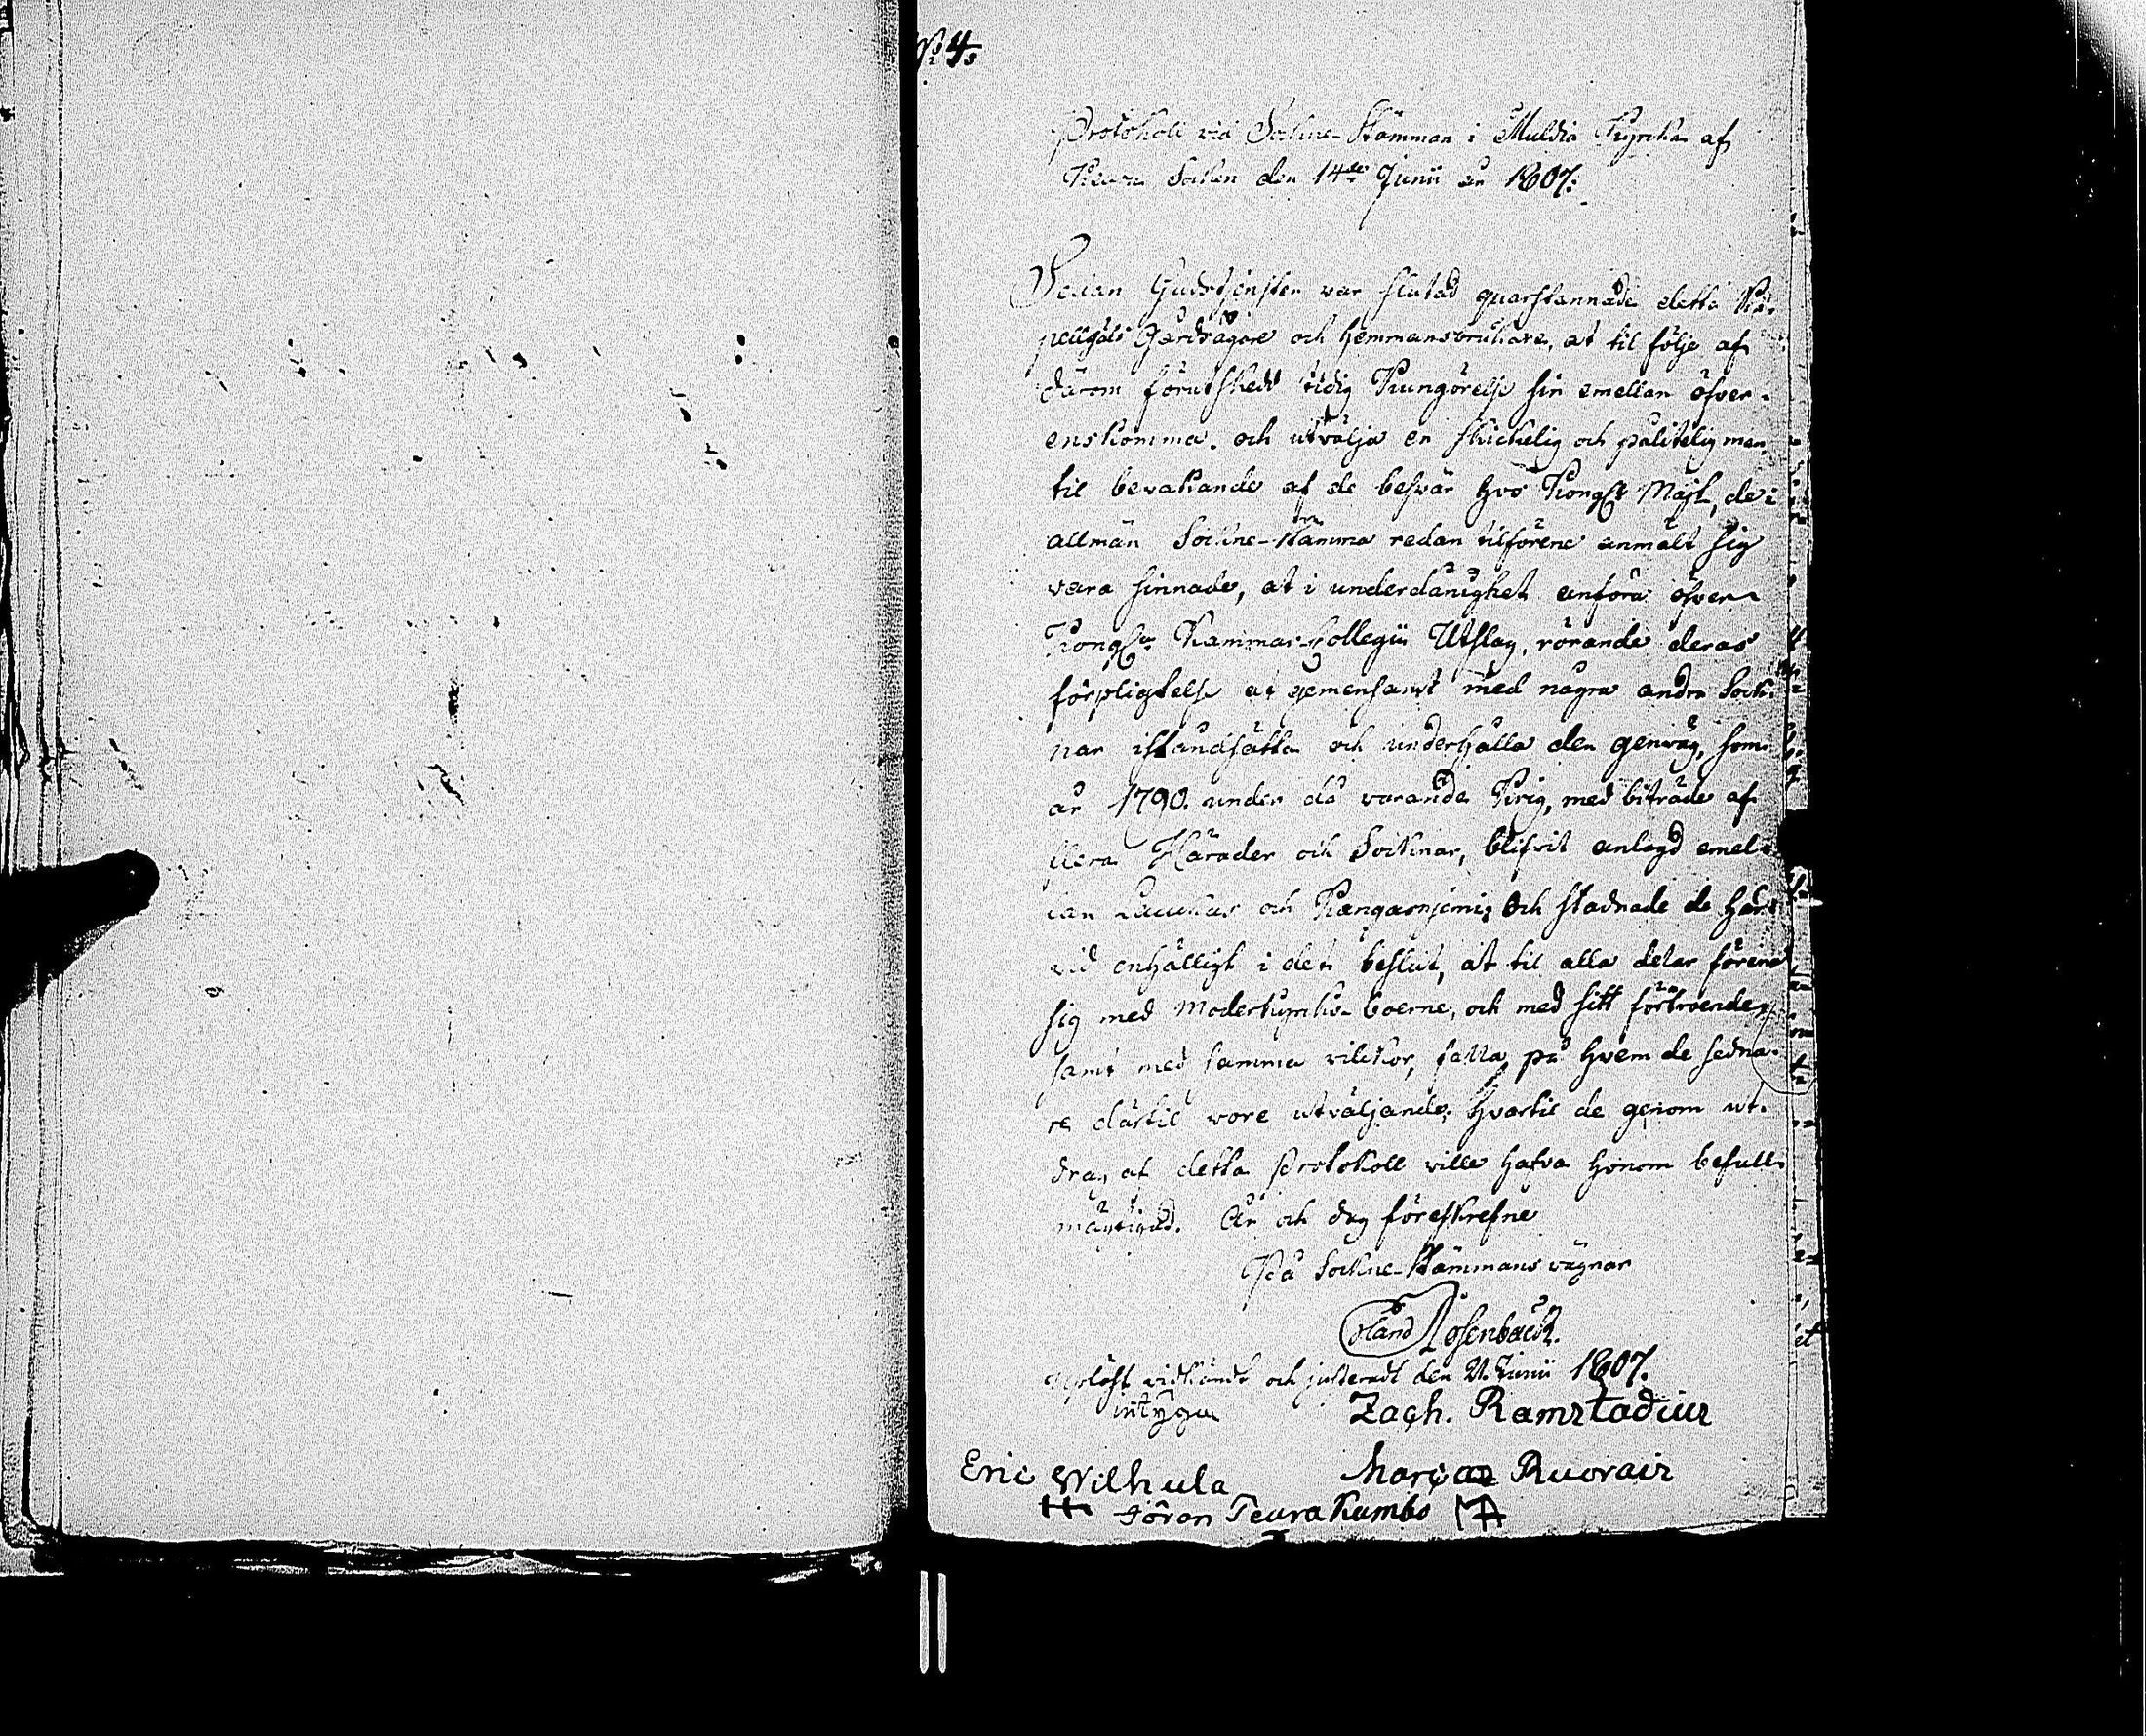 N:o 4.
Protokoll vid Sockne-Stämman i Muldia Kyrcka af
Keuru Socken den 14de Junii år 1807.
Sedan Gudstjensten var slutad quarstannade detta Ka-
pellgälds Gårdsägare och hemmansbrukare, at til följe af
därom förutskedd tidig Kungörelse sin emellan öfver-
enskomma och utvälja en skickelig och pålitelig man,
til bevakande af de besvär hos Kongl Majt, de i
allmän Sockne-Stämma redan tilförene anmält sig
vara sinnade, at i underdånighet anföra öfver
Kongl Kammar-Collegii Utslag, rörande deras
förpligtelse at gemensamt med några andra Sock-
nar iståndsätta och underhålla den genväg, som
år 1790 under då varande Krig, med biträde af
flera Härader och Socknar, blifvit anlagd emel-
lan Laukas och Kangasnjemi; Och stadnade de här
vid enhälligt i det beslut, at til alla delar förena
sig med Moderkyrko-boerne, och med sitt förtroende,
samt med samma vilckor, falla på hvem de sedna-
re därtil vore utväljande; Hvartil de genom ut-
drag af detta Protokoll ville hafva honom befull-
mägtigad. År och dag föreskrefne
På Sockne-Stämmans vägnar
Roland Rosenback.
Upläst vidkändt och justeradt den 21 Junii 1807.
intyga Zach. Ramstadius
Eric Wilhula Marcus Ruorais
Jöran Teurakumbo